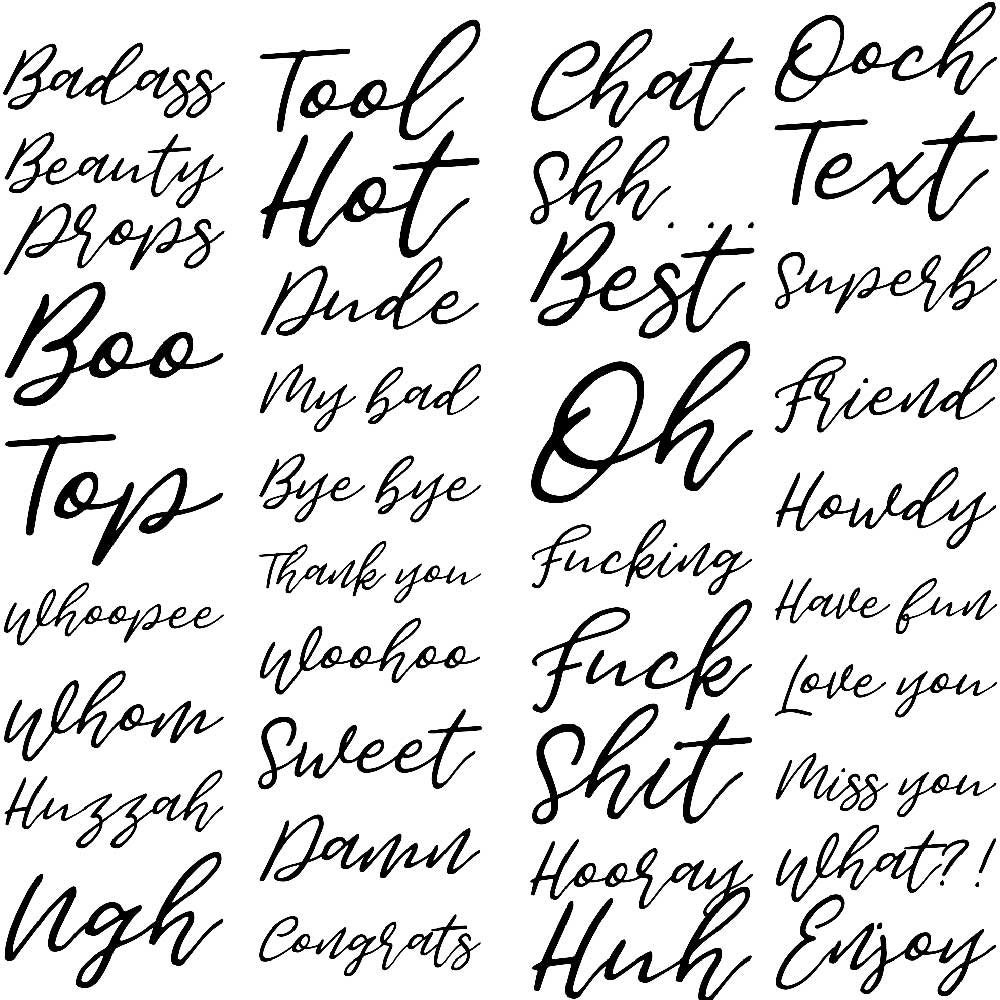 Badass
Beauty
Props
Boo
Top
Whoopee
Whom
Huzzah
Ngh
Tool
Hot
Dude
My bad
Bye bye
Thank you
Woohoo
Sweet
Damn
Congrats
Chat
Shh...
Best
Oh
Fucking
Fuck
Shit
Hooray
Huh
Ooch
Text
Superb
Friend
Howdy
Have fun
Love you
Miss you
What?!
Enjoy